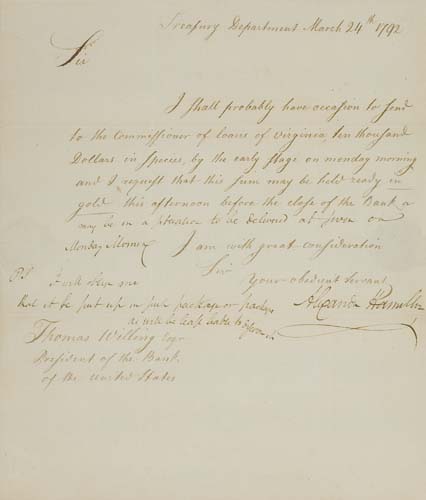 Treasury Department March 24th 1792
Sir
I shall probably have occasion to send
to the Commissioner of loans of Virginia, ten thousand
Dollars in species, by the early stage on monday morning
and I request that this sum may be held ready in
gold this afternoon before the close of the Bank
may be in a situation to be delivered at seven on
Monday Morning
I am with great consideration
Sir
Your obedient servant
Alexander Hamilton
PS
it will oblige me
that it be put up in such package or packages
as will be least liable to
Thomas Willing Esqr
President of the Bank
of the United States